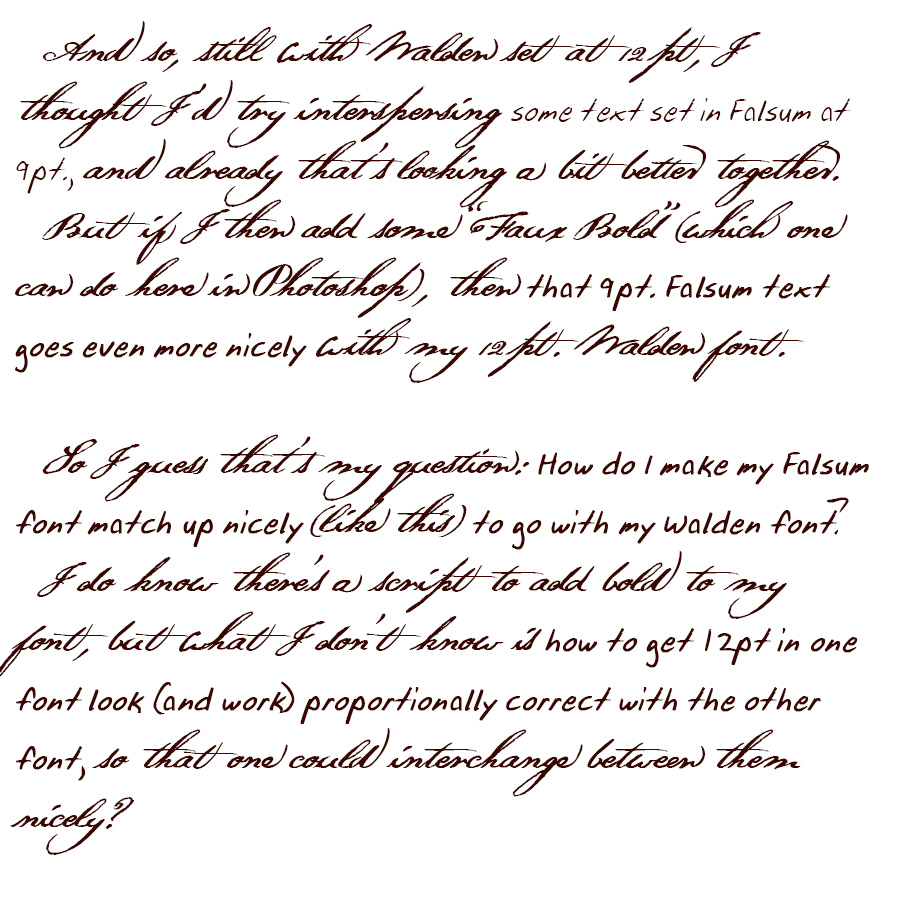 And so, still with Walden set at 12 pt, I
thought I'd try interspersing some text set in Falsum at
9pt., and already that's looking a bit better together.
But if I then add some "Faux Bold" (which one
can do here in Photoshop), then that 9pt. Falsum text
goes even more nicely with my 12 pt. Walden font.
So I guess that's my question: How do I make my Falsum
font match up nicely (like this) to go with my Walden font?
I do know there's a script to add bold to my
font, but what I don't know is how to get 12pt in one
font look (and work) proportionally correct with the other
font, so that one could interchange between them
nicely?